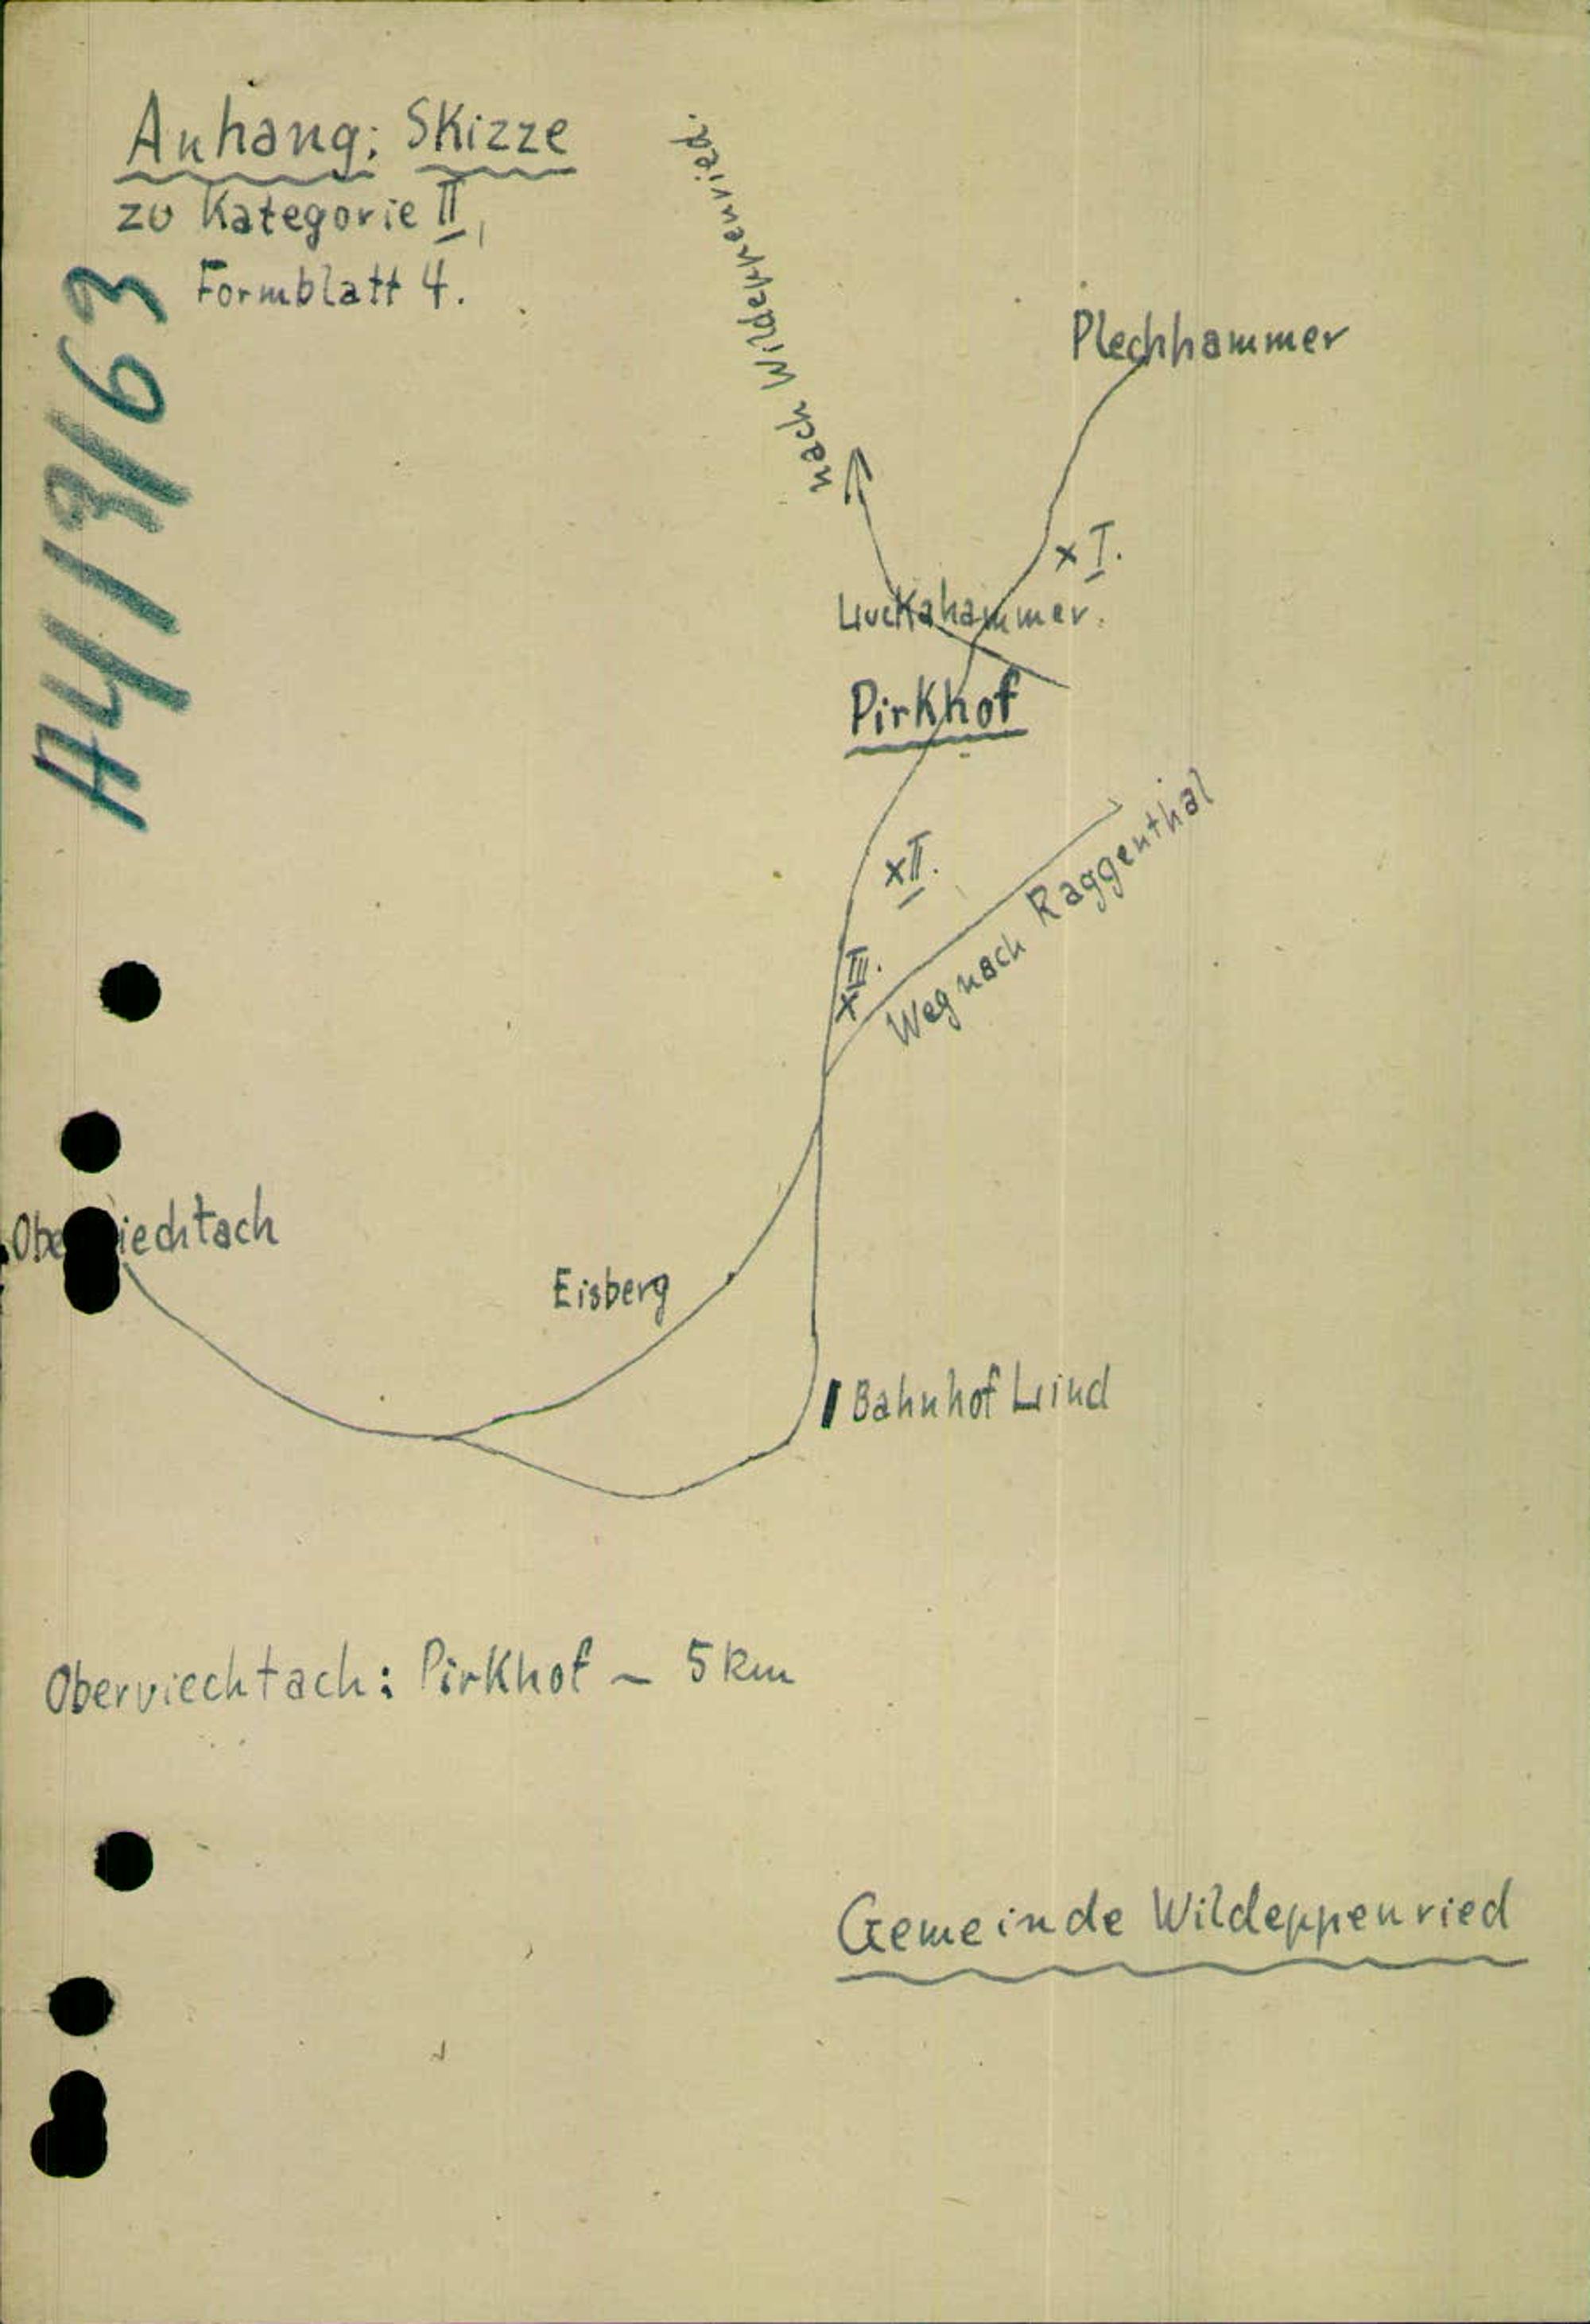 Anhang: Skizze
zu Kategorie II,
Formblatt 4.
A4/13/63
nach Wildeppenried.
Plechhammer
x I.
Luckahammer.
Pirkhof
x II.
x III.
Weg nach Raggenthal
Obe iechtach
Eisberg
Bahnhof Lind
Oberviechtach: Pirkhof ~ 5 km
Gemeinde Wildeppenried